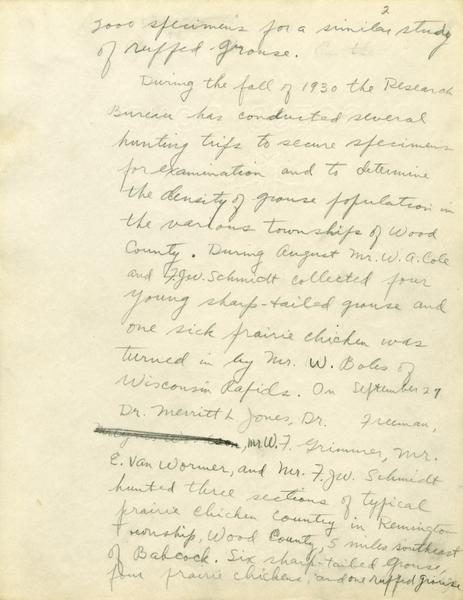 2
2000 specimens for a similar study
of ruffed grouse.
During the fall of 1930 the Research
Bureau has conducted several
hunting trips to secure specimens
for examination and to determine
the density of grouse population in
the various townships of Wood
County. During August Mr. W. A. Cole
and F.J.W. Schmidt collected four
young sharp-tailed grouse and
one sick prairie chicken was
turned in by Mr. W. Boles of
Wisconsin Rapids. On September 27
Dr. Merritt L Jones, Dr. Freeman,
, Mr. W. F. Grimmer, Mr.
E. Van Wormer, and Mr. F.J.W. Schmidt
hunted three sections of typical
prairie chicken country in Remington
Township, Wood County, 5 miles southeast
of Babcock. Six sharp-tailed grouse,
four prairie chickens, and one ruffed grouse